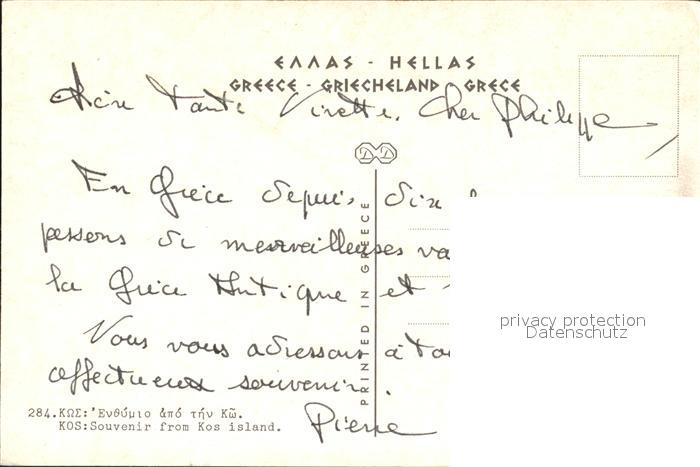 ΕΛΛΑΣ - HELLAS
GREECE - GRIECHELAND - GRECE
Tante Cher Philippe
En Grèce depuis dix
passons de merveilleuses va
la Grèce Antique et
PRINTED IN GREECE
privacy protection
Datenschutz
Vous vous adressons à to
affectueux souvenir.
284.ΚΩΣ:Ἐνθύμιο ἀπό τήν Κῶ.
KOS:Souvenir from Kos island.
Pierre